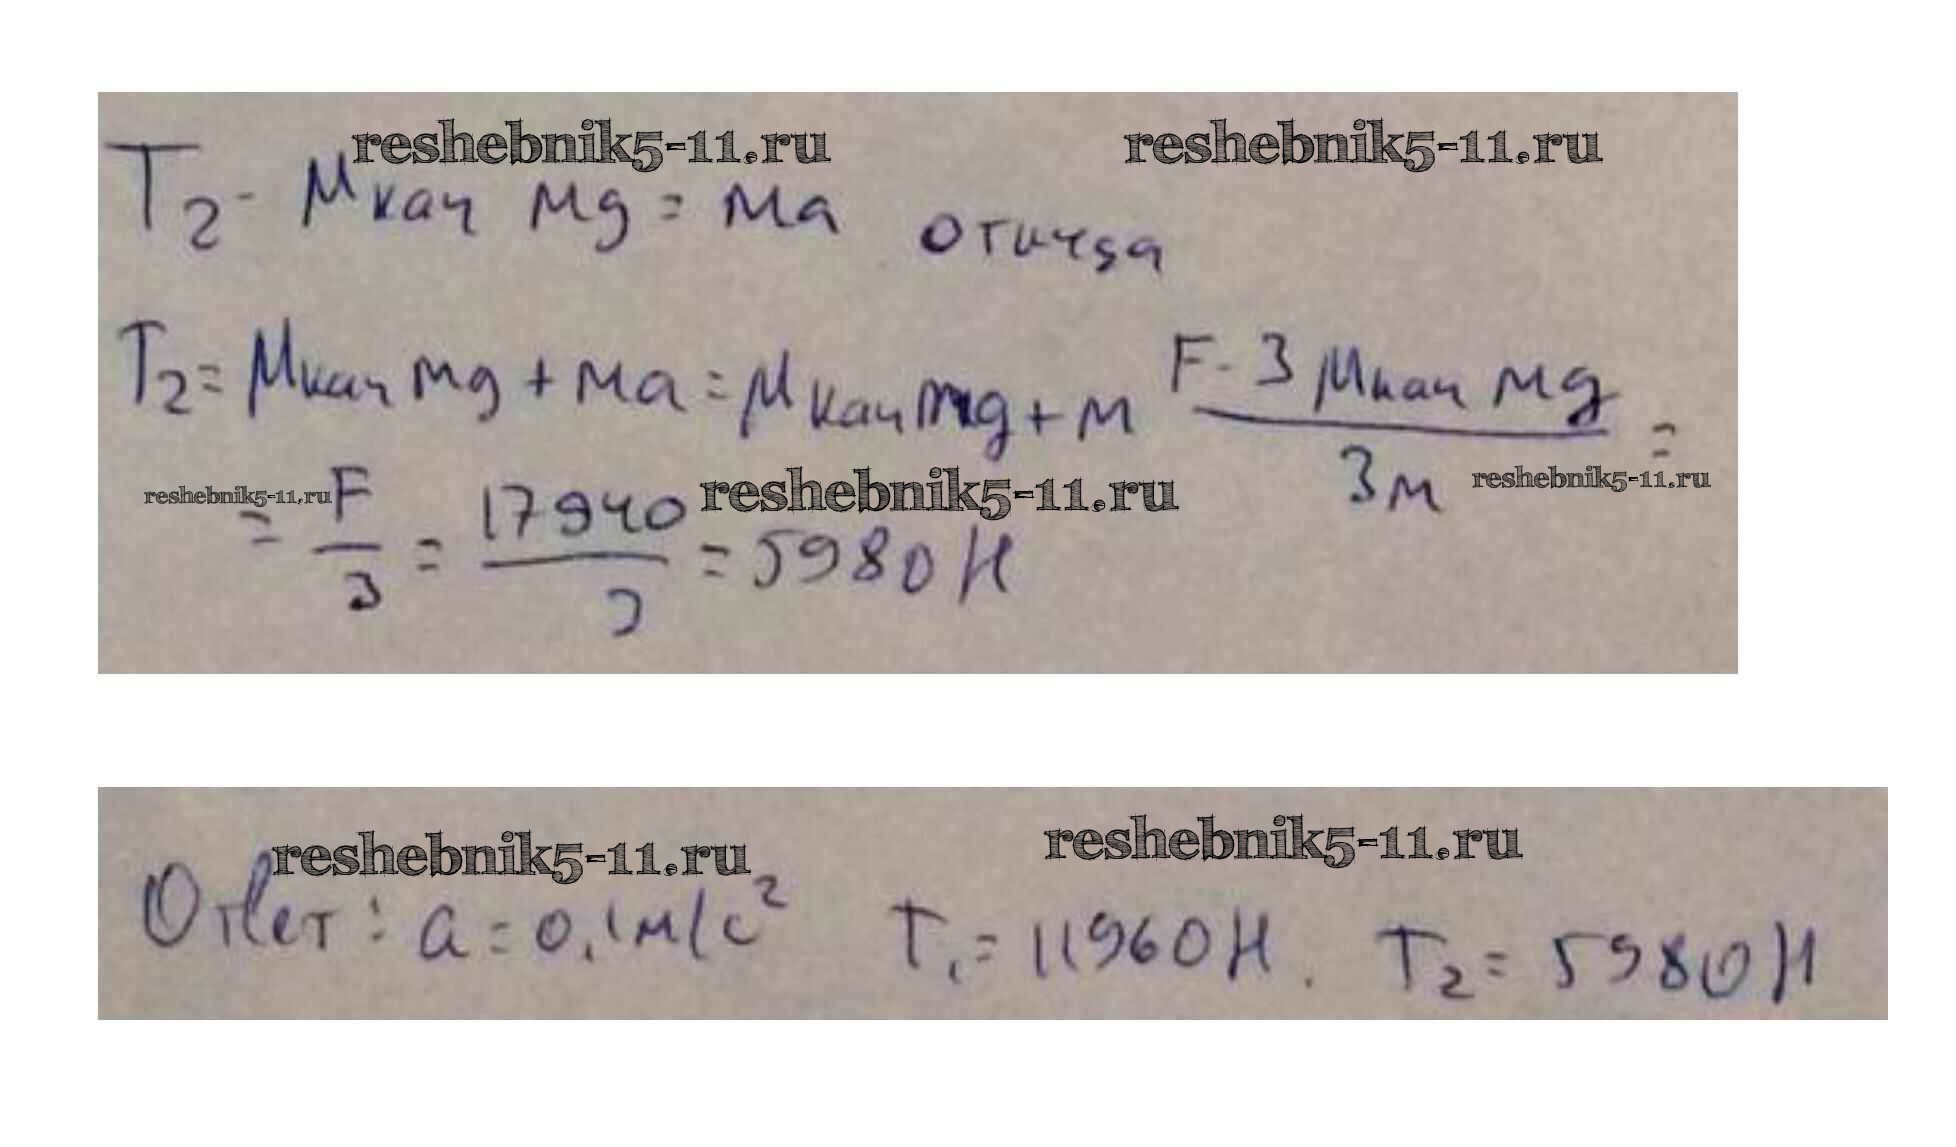 reshebnik5-11.ru reshebnik5-11.ru
T₂ - μкач mg = ma отсюда
T₂ = μкач mg + ma = μкач mg + m (F - 3 μкач mg)/(3m) =
reshebnik5-11.ru reshebnik5-11.ru reshebnik5-11.ru
= F/3 = 17940/3 = 5980 Н
reshebnik5-11.ru reshebnik5-11.ru
Ответ: a = 0,1 м/с² T₁ = 11960 Н. T₂ = 5980 Н